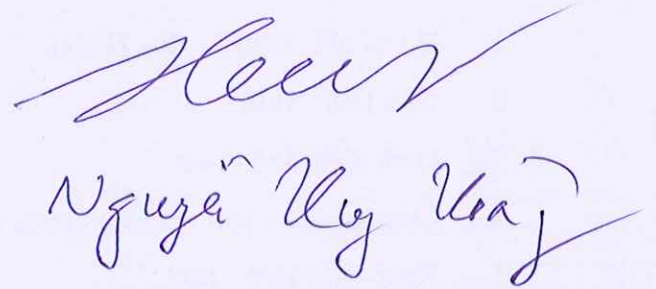 Nguyễn Huy Hoàng